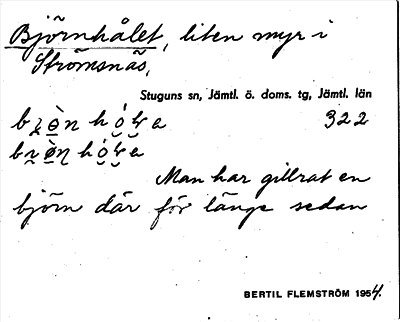 Björnhålet, liten myr i
Strömsnäs.
Stuguns sn, Jämtl. ö. doms. tg, Jämtl. län
322
Man har gillrat en
björn där för länge sedan
BERTIL FLEMSTRÖM 1954.